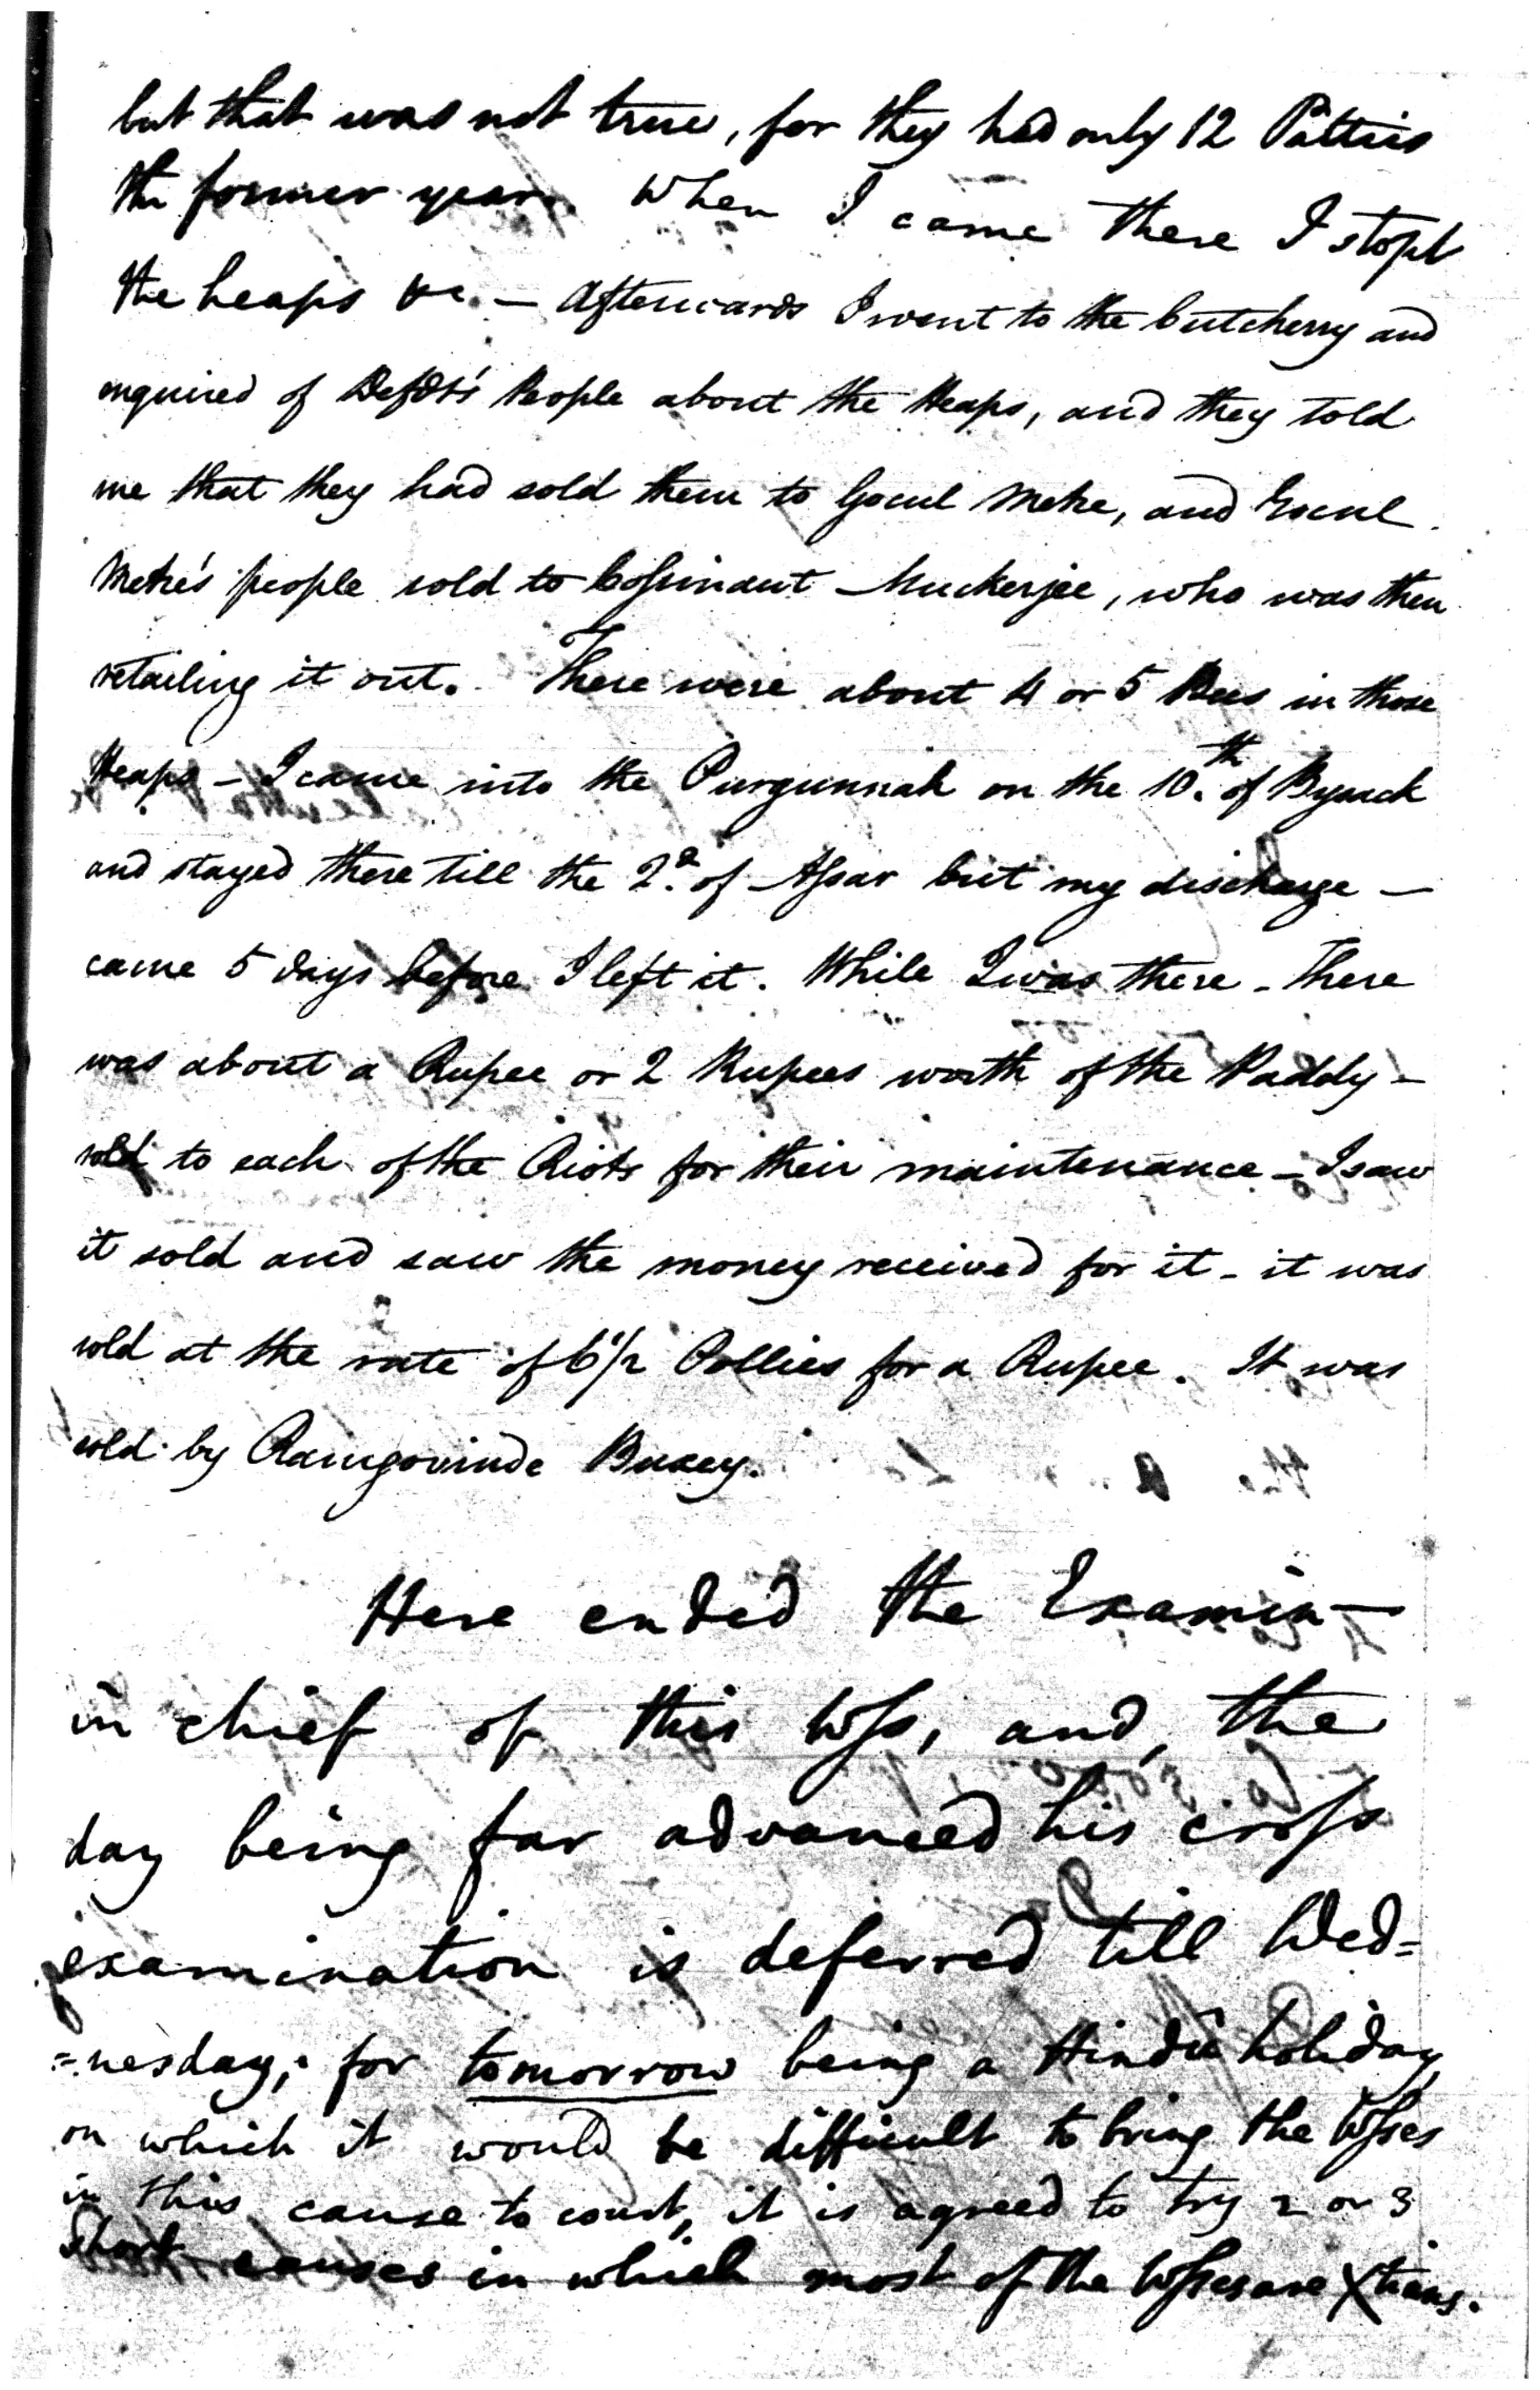 but that was not true, for they had only 12 Potties
the former year. When I came there I stopt
the heaps &c. — Afterwards I went to the Cutcherry and
enquired of Defdt's People about the Heaps, and they told
me that they had sold them to Gocul Metre, and Gocul
Metre's people sold to Cossinaut Muckerjee, who was then
retailing it out. There were about 4 or 5 Bees in those
Heaps – I came into the Purgunnah on the 10.th of Bysack
and stayed there till the 2.d of Assar but my discharge –
came 5 days before I left it. While I was there – there
was about a Rupee or 2 Rupees worth of the Paddy –
sold to each of the Riots for their maintenance – I saw
it sold and saw the money received for it – it was
sold at the rate of 6 1/2 Pollies for a Rupee. It was
sold by Ramgovinde Buxey.
Here ended the Examin–
in chief of this Wss, and, the
day being far advanced his cross
examination is deferred till Wed=
=nesday; for tomorrow being a Hindu holiday,
on which it would be difficult to bring the Wsses
in this cause to court, it is agreed to try 2 or 3
short causes in which most of the Wsses are Xtians.